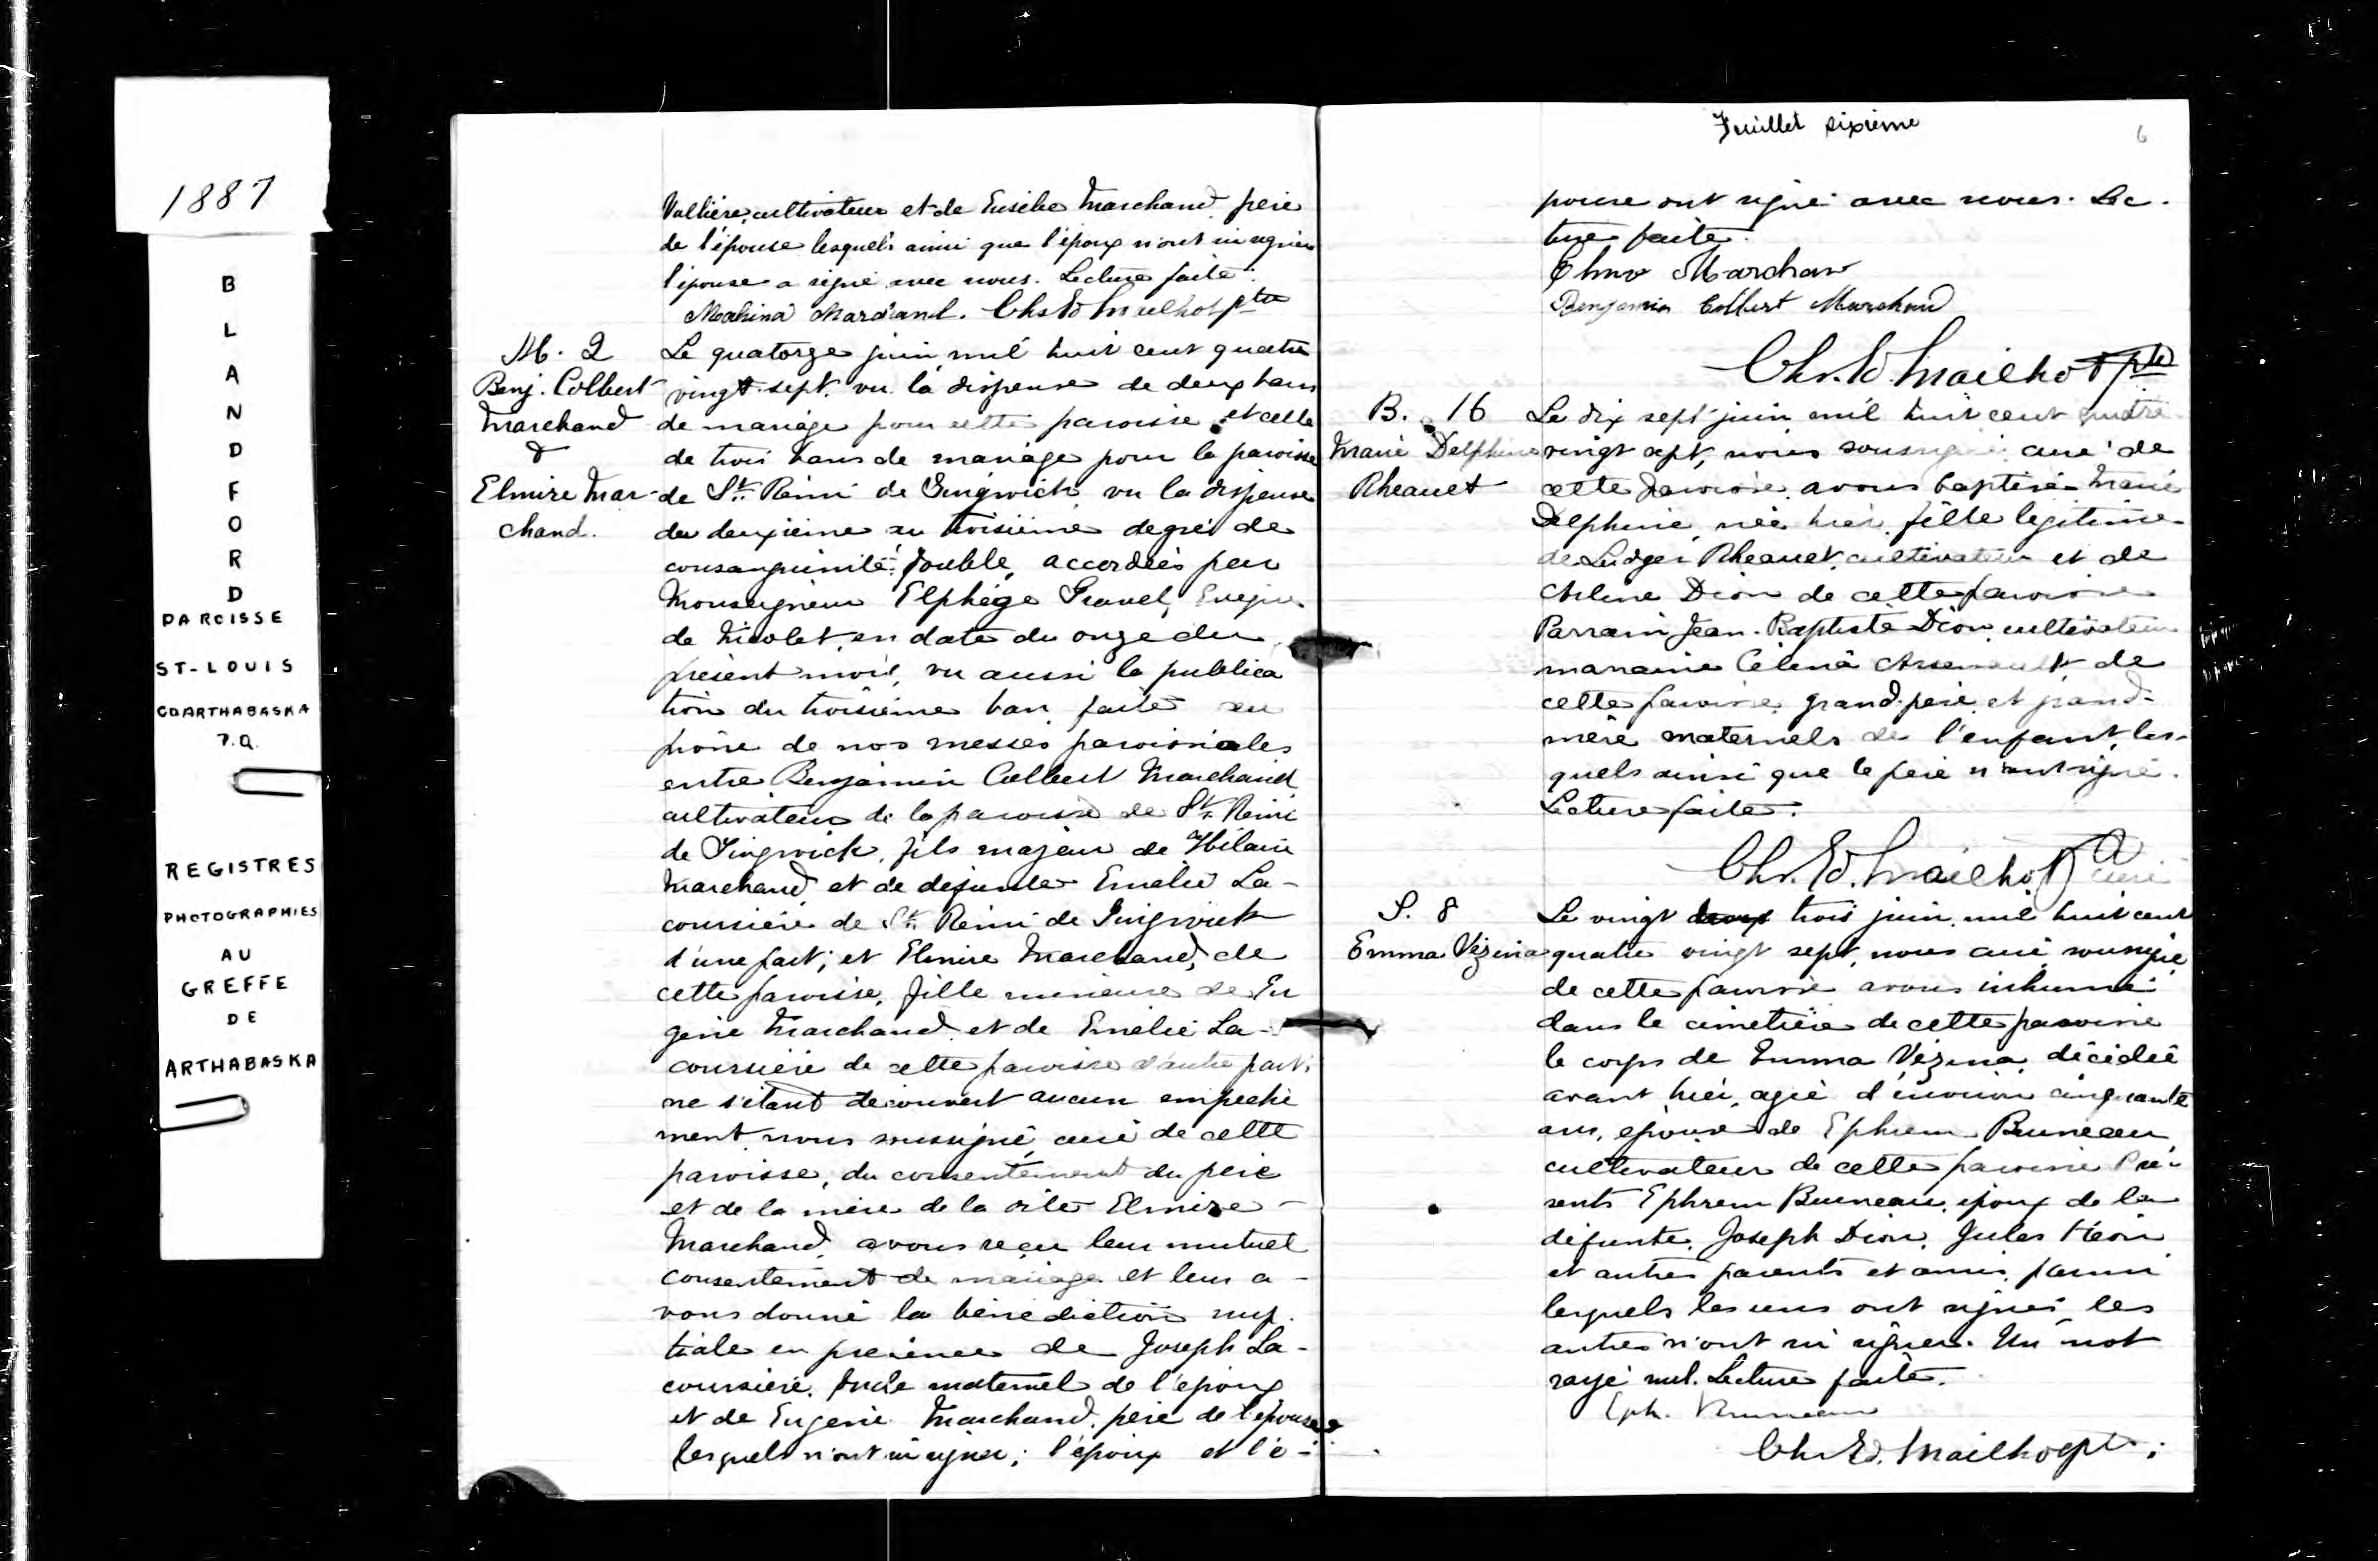 1887
B
L
A
N
D
F
O
R
D
PAROISSE
ST-LOUIS
CO ARTHABASKA
P.Q.
REGISTRES
PHOTOGRAPHIES
AU
GREFFE
DE
ARTHABASKA
Vallière, cultivateur et de Eusèbe Marchand père
de l'épouse lesquels ainsi que l'époux n'ont su signer
l'épouse a signé avec nous. Lecture faite.
Marchand. Chs Ed Mailhot ptre
M. 2
Benj. Colbert
Marchand
&
Elmire Mar-
chand.
Le quatorze juin mil huit cent quatre
vingt-sept, vu la dispense de deux bans
de mariage pour cette paroisse et celle
de trois bans de mariage pour la paroisse
de St. Rémi de Tingwick vu la dispense
du deuxième au troisième degré de
consanguinité double, accordées par
Monseigneur Elphège Gravel, Evêque
de Nicolet, en date du onze du
présent mois, vu aussi la publica
tion du troisième ban faite au
prône de nos messes paroissiales
entre Benjamin Colbert Marchand
cultivateur de la paroisse de St. Rémi
de Tingwick, fils majeur de Hilaire
Marchand et de défunte Emélie La-
coursière de St. Rémi de Tingwick
d'une part; et Elmire Marchand, de
cette paroisse, fille mineure de Eu
gène Marchand et de Emélie La-
coursière de cette paroisse d'autre part;
ne s'étant découvert aucun empêche
ment nous soussigné, curé de cette
paroisse, du consentement du père
et de la mère de la dite Elmire
Marchand, avons reçu leur mutuel
consentement de mariage et leur a-
vons donné la bénédiction nup
tiale en présence de Joseph La-
coursière, oncle maternel de l'époux
et de Eugène Marchand, père de l'épouse
lesquels n'ont su signer; l'époux et l'é-
Feuillet sixième
6
pouse ont signé avec nous. Lec-
ture faite.
Marchan
Benjamin Colbert Marchand
Chs. Ed. Mailhot ptre
B. 16
Marie Delphine
Rheault
Le dix sept juin mil huit cent quatre
vingt sept, nous soussigné curé de
cette paroisse avons baptisé Marie
Delphine, née hier, fille légitime
de Ludger Rheault, cultivateur et de
Arline Dion de cette paroisse
Parrain Jean-Baptiste Dion, cultivateur
marraine Célena Arsenault, de
cette paroisse, grand-père et grand-
mère maternels de l'enfant, les-
quels ainsi que le père n'ont signé.
Lecture faite.
Chs. Ed. Mailhot Curé
S. 8
Emma Vézina
Le vingt deux trois juin, mil huit cent
quatre vingt sept, nous curé soussigné
de cette paroisse avons inhumé
dans le cimetière de cette paroisse
le corps de Emma Vézina, décédée
avant hier, agée d'environ cinquante
ans, épouse de Ephrem Bruneau
cultivateur de cette paroisse. Pré-
sents Ephrem Bruneau, époux de la
défunte, Joseph Dion, Jules Héon
et autres parents et amis, parmi
lesquels les uns ont signé les
autres n'ont su signer. Un mot
rayé nul. Lecture faite.
Eph. Bruneau
Chs Ed. Mailhot ptre